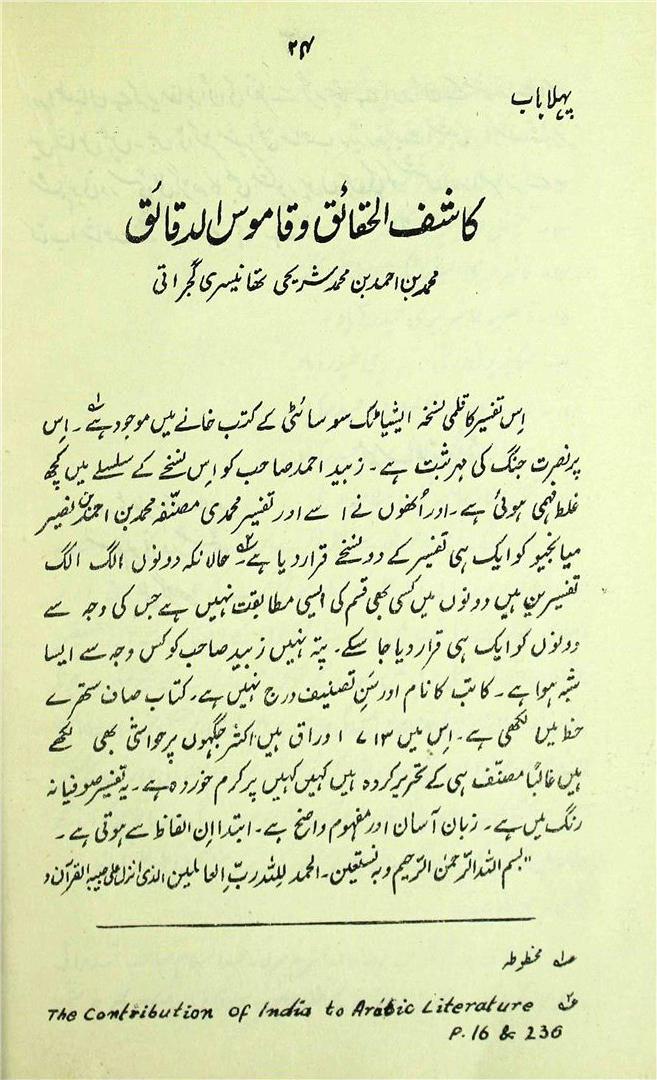 ۲۴
پہلا باب
کاشف الحقائق و قاموس الدقائق
محمد بن احمد بن محمد شریحی تھانیسری گجراتی
اِس تفسیر کا قلمی نسخہ ایشیاٹک سوسائٹی کے کتب خانے میں موجود ہے۱؎ ۔ اِس
پر نصرت جنگ کی مہر ثبت ہے ۔ زبید احمد صاحب کو اس نسخے کے سلسلے میں کچھ
غلط فہمی ہوئی ہے ۔ اور اُنھوں نے اسے اور تفسیر محمدی مصنّفہ محمد بن احمد بن نصیر
میانجیو کو ایک ہی تفسیر کے دو نسخے قرار دیا ہے۲؎ حالانکہ دونوں الگ الگ
تفسیریں ہیں دونوں میں کسی بھی قسم کی ایسی مطابقت نہیں ہے جس کی وجہ سے
دونوں کو ایک ہی قرار دیا جا سکے ۔ پتہ نہیں زبید صاحب کو کس وجہ سے ایسا
شبہ ہوا ہے ۔ کاتب کا نام اور سَنِ تصنیف درج نہیں ہے ۔ کتاب صاف ستھرے
خط میں لکھی ہے ۔ اِس میں ۷۱۳ اوراق ہیں اکثر جگہوں پر حواشی بھی لکھے
ہیں غالباً مصنّف ہی کے تحریر کردہ ہیں کہیں کہیں پر کرم خوردہ ہے ۔ یہ تفسیر صوفیانہ
رنگ میں ہے ۔ زبان آسان اور مفہوم واضح ہے ۔ ابتدا اِن الفاظ سے ہوتی ہے ۔
"بسم اللہ الرّحمٰن الرّحیم وبہ نستعین ۔ الحمد للہ ربّ العالمین الذی انزل علی حبیبہ القرآن و
۱؎ مخطوطہ
۲؎ The Contribution of India to Arabic Literature
P. 16 & 236